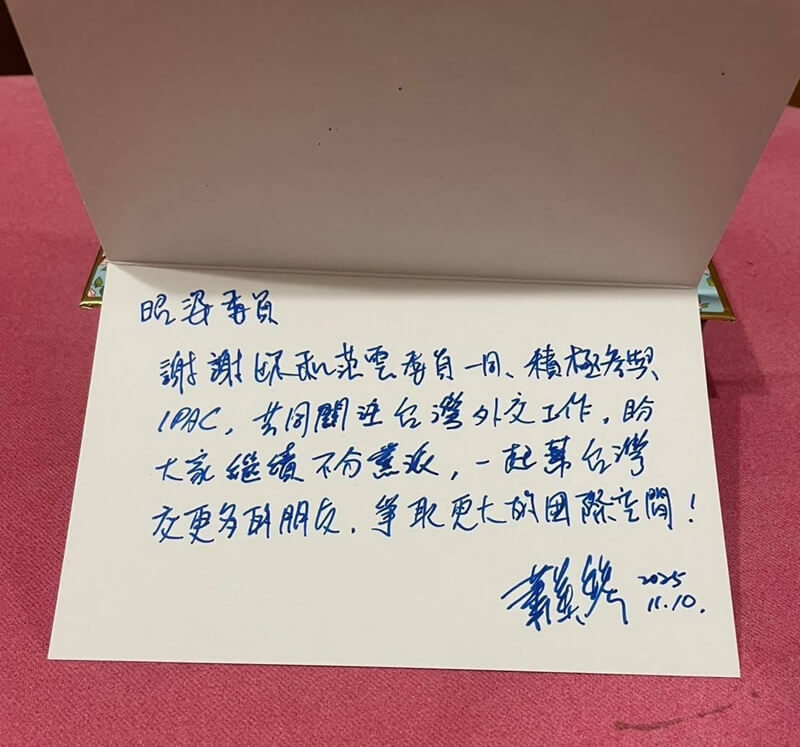 昭姿委員
謝謝您和范雲委員一同、積極參與
IPAC，共同關注台灣外交工作，盼
大家繼續不分黨派，一起幫台灣
交更多的朋友，爭取更大的國際空間！
蕭美琴 2025
11.10.